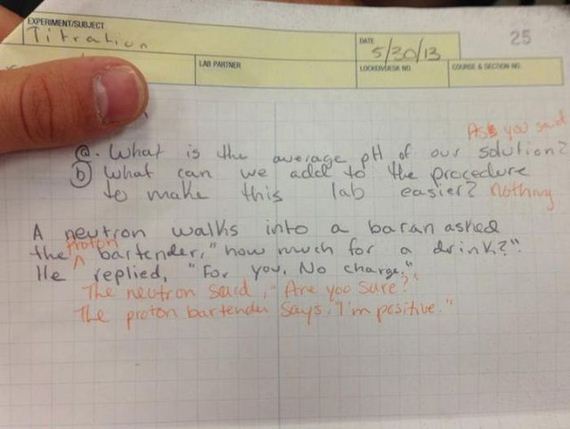 EXPERIMENT/SUBJECT
Titration
DATE
5/30/13
25
LAB PARTNER
LOCKER/DESK NO.
COURSE & SECTION NO.
As you said
a. What is the average pH of our solution?
b) what can we add to the procedure
to make this lab easier? nothing
A neutron walks into a bar an asked
the proton bartender, "how much for a drink?"
He replied, "For you, No charge."
The neutron said, "Are you sure?"
The proton bartender says, "I'm positive."